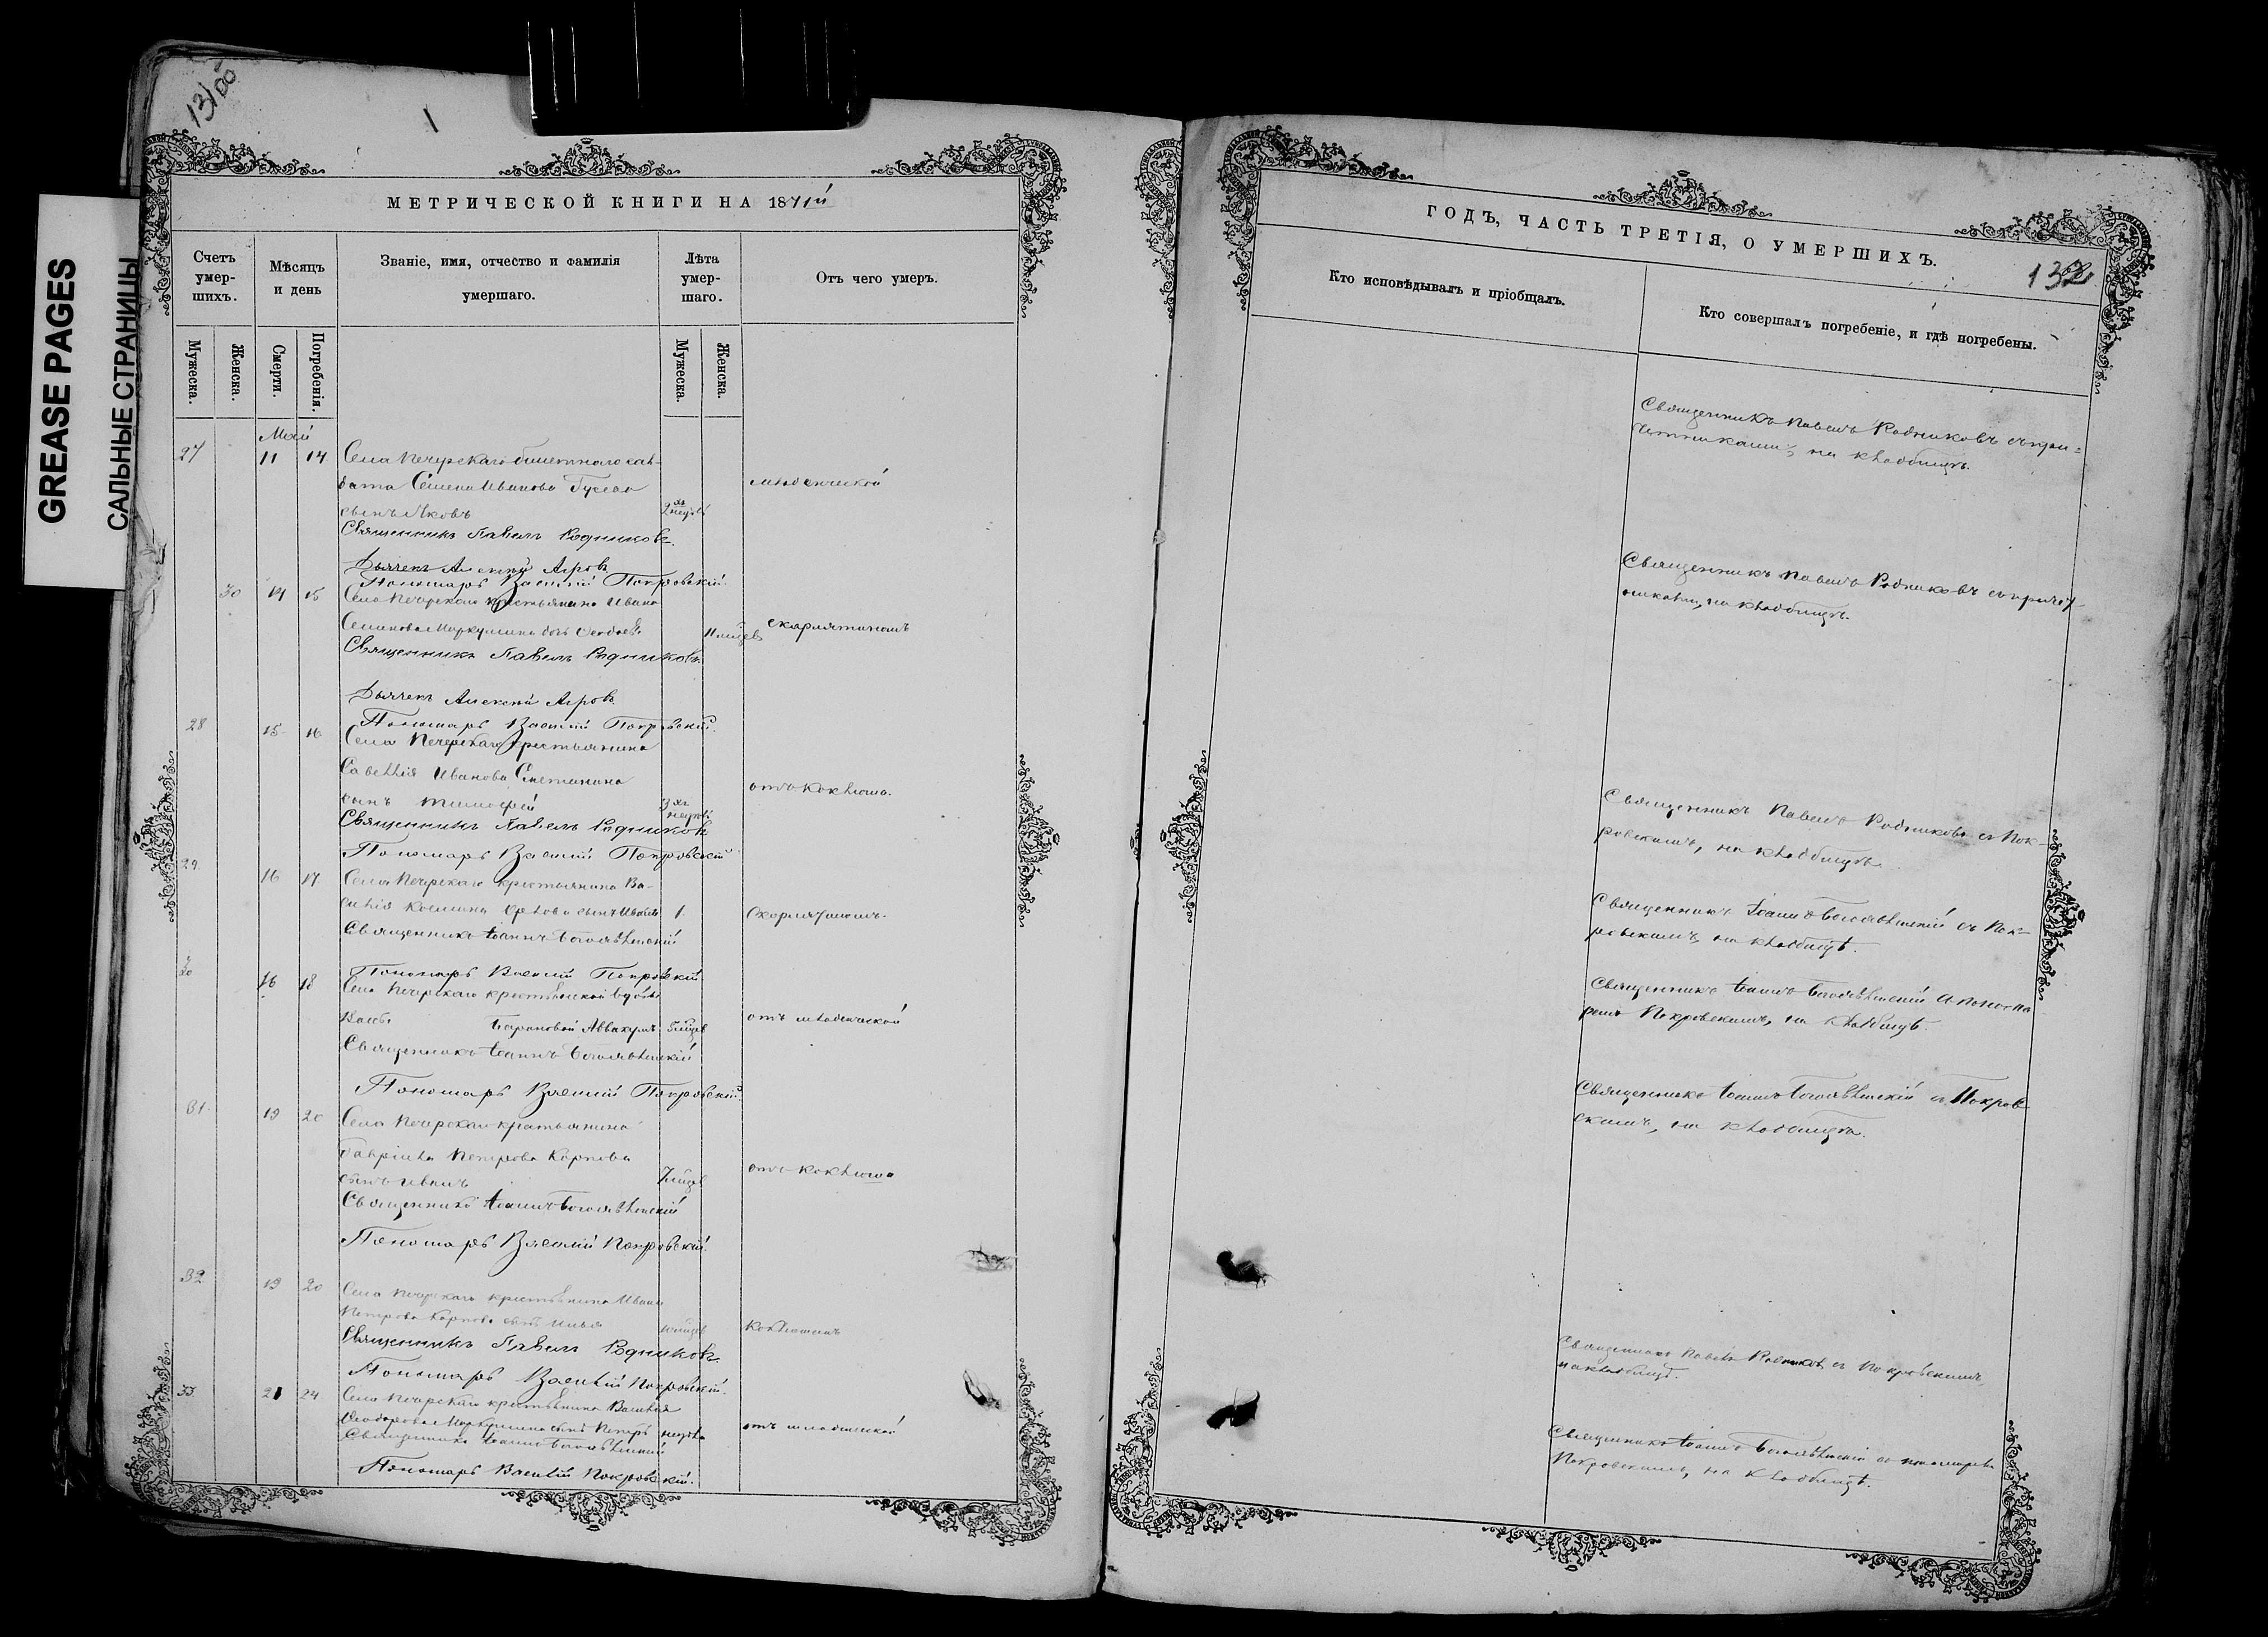 13/00
GREASE PAGES
САЛЬНЫЕ СТРАНИЦЫ
МЕТРИЧЕСКОЙ КНИГИ НА 1871й
Счетъ умер-шихъ.
Мѣсяцъ и день
Званіе, имя, отчество и фамилія
умершаго.
Лѣта умер-шаго.
Отъ чего умеръ.
Мужеска.
Женска.
Смерти.
Погребенія.
Мужеска.
Женска.
Май
27 11 14 Села Печерскаго билетнаго сол-
дата Семена Иванова Гусева
младенческой
сынъ Яковъ 2хъ недѣль
Священникъ Павелъ Родниковъ.
Дьячекъ Алексѣй Агровъ
Пономарь Василій Покровскій.
30 14 15 Села Печерскаго крестьянина Ивана
Семенова Маркушина дочь
скарлатиномъ
Священникъ Павелъ Родниковъ
Дьячекъ Алексѣй Агровъ
Пономарь Василій Покровскій.
28 15 16 Села Печерскаго крестьянина
Савелія Иванова Сметанина
отъ коклюша.
сынъ Тимофей 3хъ недѣль
Священникъ Павелъ Родниковъ
Пономарь Василій Покровскій
29 16 17 Села Печерскаго крестьянина Ва-
силія Космина сынъ Иванъ 1
Священникъ Іоаннъ Богоявленскій
Пономарь Василій Покровскій
30 16 18 Села Печерскаго крестьянской вдовы
Барановой Аввакумъ 5 мѣцев
отъ младенческой
Священникъ Іоаннъ Богоявленскій
Пономарь Василій Покровскій.
31 19 20 Села Печерскаго крестьянина
Гавріила Петрова Карпова
отъ коклюша
сынъ Иванъ 7 мѣцев
Священникъ Іоаннъ Богоявленскій
Пономарь Василій Покровскій.
32 19 20 Села Печерскаго крестьянина Ивана
Петрова Карпова сынъ Илья
коклюшемъ
Священникъ Павелъ Родниковъ.
Пономарь Василій Покровскій.
33 21 24 Села Печерскаго крестьянина Василія
Ѳеодорова Маркушина сынъ Петръ недѣля
отъ младенческой
Священникъ Іоаннъ Богоявленскій
Пономарь Василій Покровскій.
ГОДЪ, ЧАСТЬ ТРЕТІЯ, О УМЕРШИХЪ.
132
Кто исповѣдывалъ и пріобщалъ.
Кто совершалъ погребеніе, и гдѣ погребены.
Священникъ Павелъ Родниковъ съ при=
четниками, на кладбищѣ.
Священникъ Павелъ Родниковъ съ причет-
никами, на кладбищѣ.
Священникъ Павелъ Родниковъ съ Пок-
ровскимъ, на кладбищѣ.
Священникъ Іоаннъ Богоявленскій съ Пок-
ровскимъ, на кладбищѣ.
Священникъ Іоаннъ Богоявленскій и понома
ремъ Покровскимъ, на кладбищѣ.
Священникъ Іоаннъ Богоявленскій съ Покров-
скимъ, на кладбищѣ.
Священникъ Павелъ Родниковъ съ Покровскимъ,
на кладбищѣ.
Священникъ Іоаннъ Богоявленскій съ пономаремъ
Покровскимъ, на кладбищѣ.